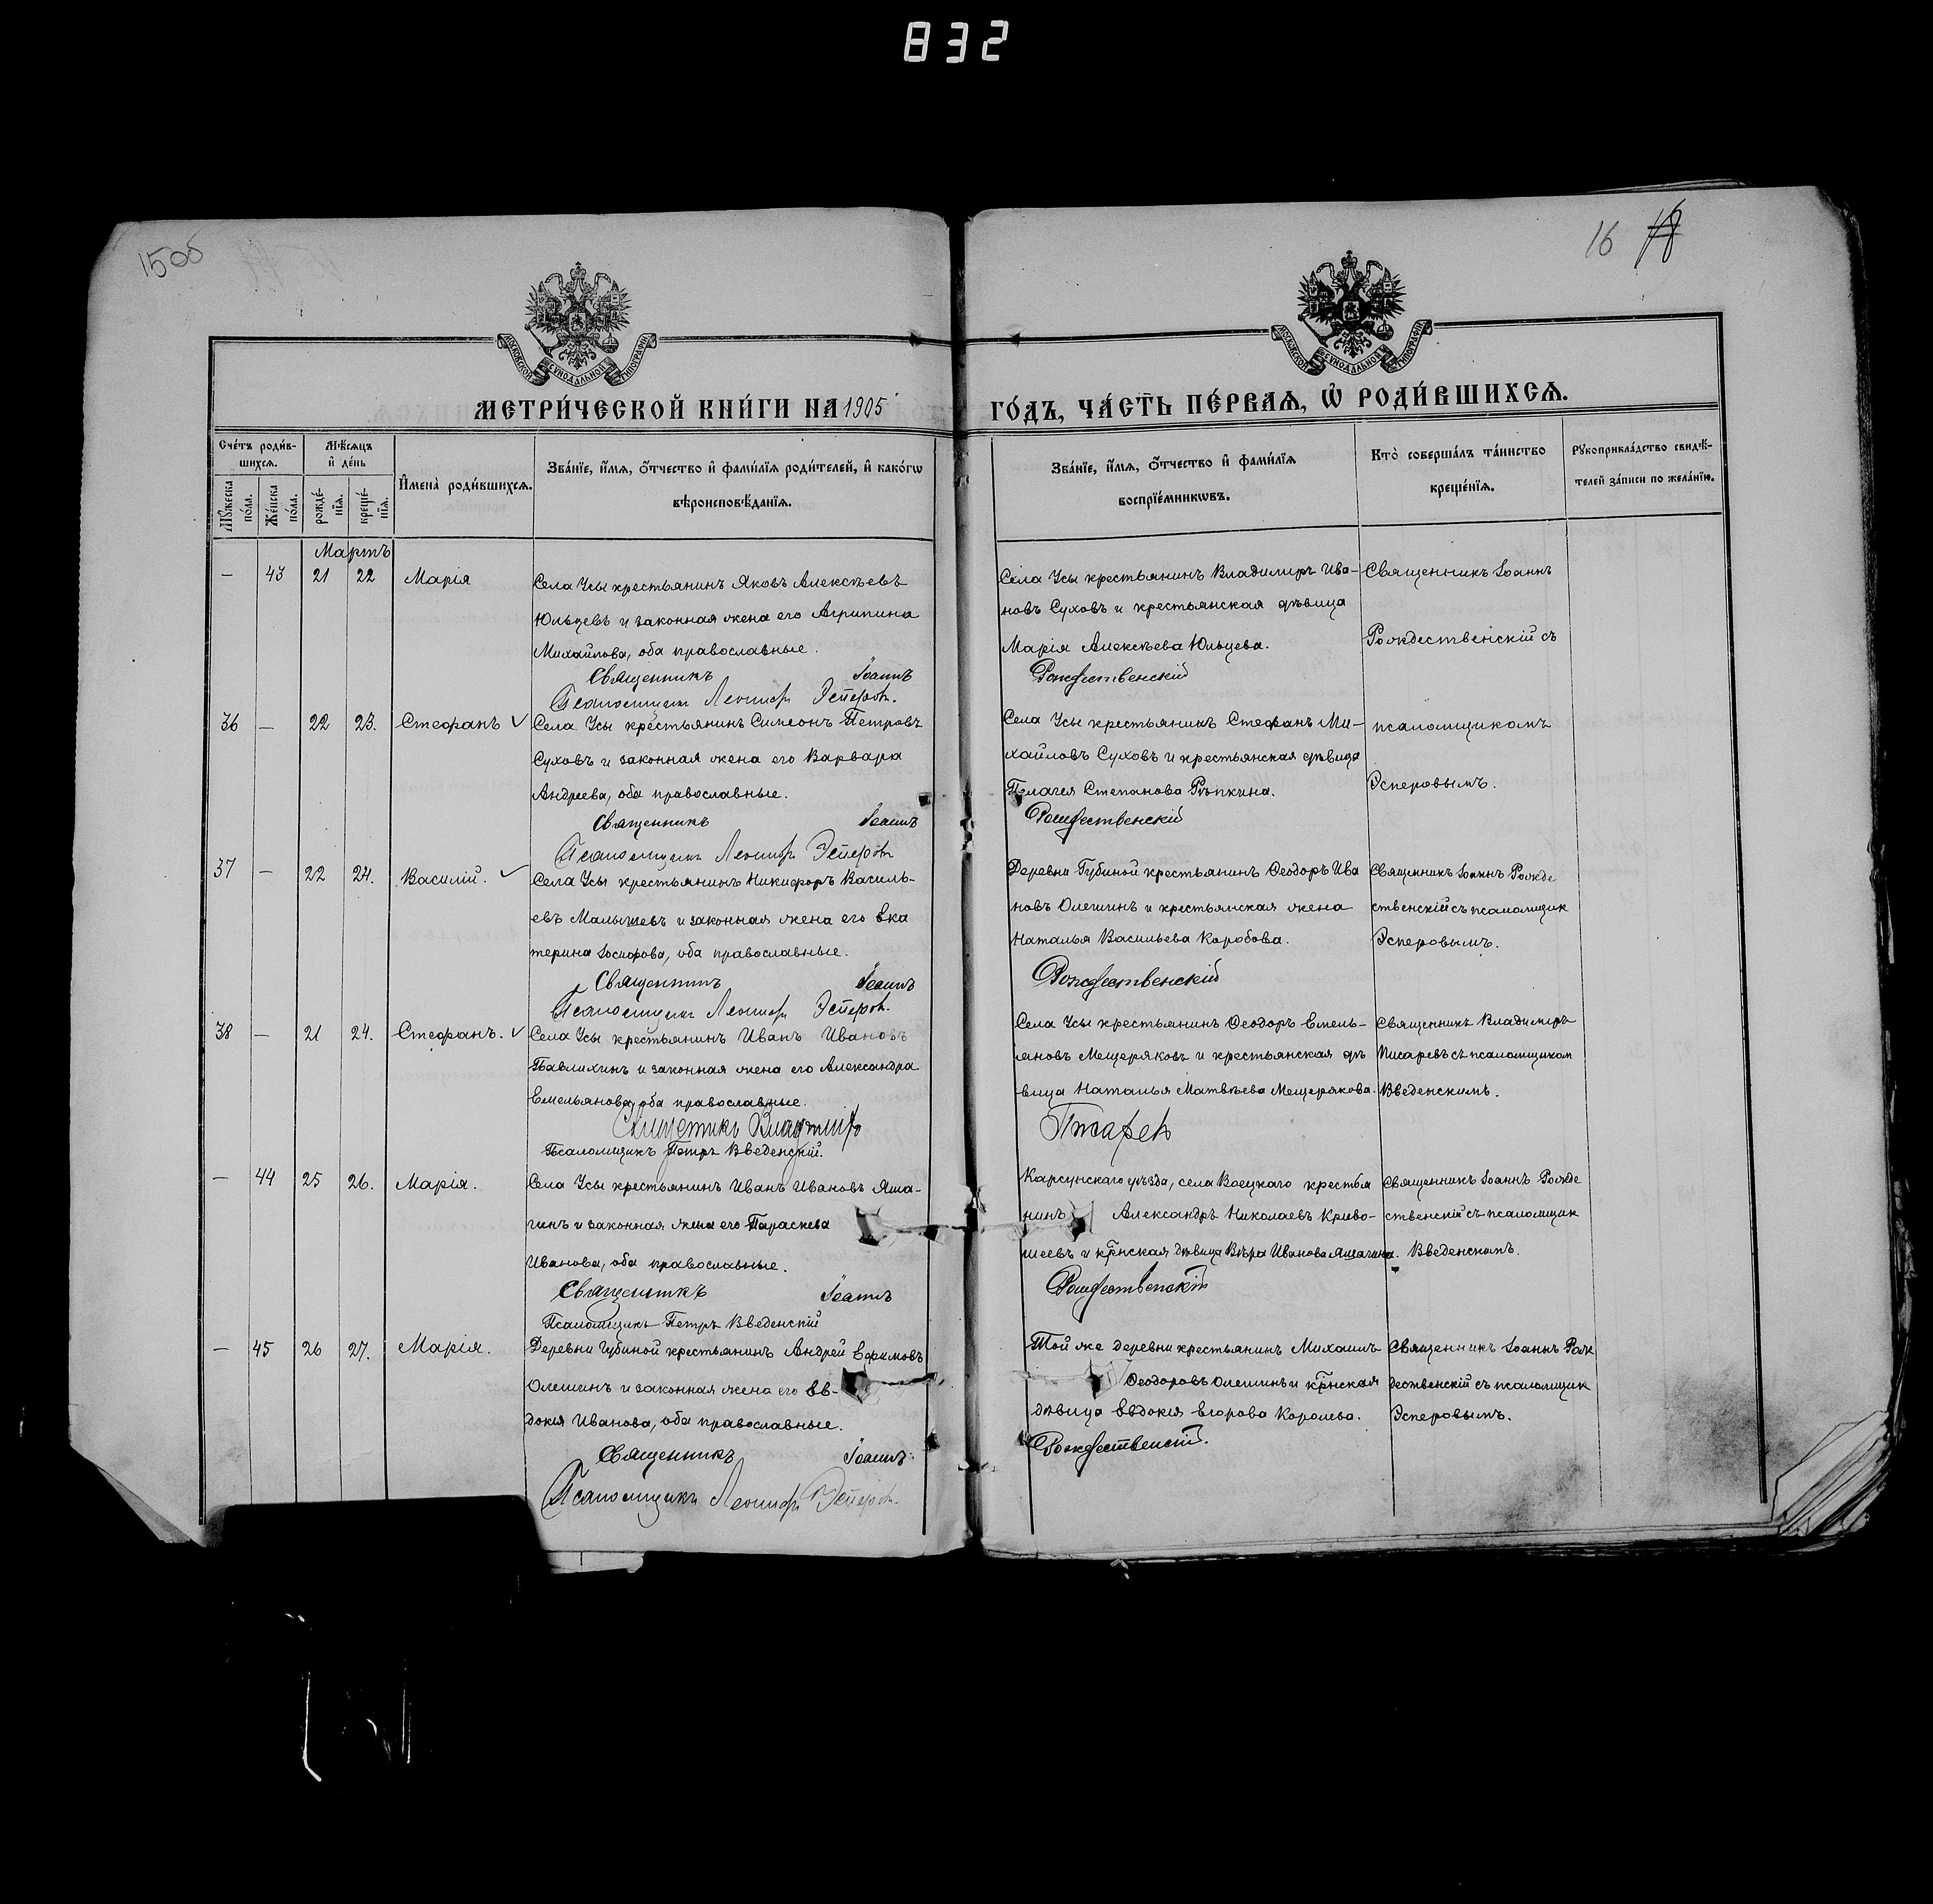 832
15об
16 18
МОСКОВСКОЙ СѴНОДАЛЬНОЙ ТИПОГРАФІИ
МОСКОВСКОЙ СѴНОДАЛЬНОЙ ТИПОГРАФІИ
МЕТРИ́ЧЕСКОЙ КНИ́ГИ НА 1905
ГО́ДЪ, ЧА́СТЬ ПЕ́РВАѦ, Ѡ҆ РОДИ́ВШИХСѦ.
Сче́тъ роди́в-
шихсѧ.
Мꙋ́жеска по́ла.
Же́нска по́ла.
Мѣ́сѧцъ
и҆ де́нь
рожде́-
нїѧ.
креще́-
нїѧ.
И҆мена̀ роди́вшихсѧ.
Зва́нїе, и҆́мѧ, ѻ҆́тчество и҆ фами́лїѧ роди́телей, и҆ како́гѡ
вѣроисповѣ́данїѧ.
Зва́нїе, и҆́мѧ, ѻ҆́тчество и҆ фами́лїѧ
воспрїе́мникѡвъ.
Кто̀ соверша́лъ та́инство
креще́нїѧ.
Рꙋкоприкла́дство свидѣ́-
телей за́писи по жела́нїю.
Мартъ
— 43 21 22 Марія
Села Усы крестьянинъ Яковъ Алексѣевъ
Юльцевъ и законная жена его Агрипина
Михайлова, оба православные.
Священникъ Іоаннъ
Псаломщикъ Леонидъ Эсперовъ.
Села Усы крестьянинъ Владимиръ Ива-
новъ Суховъ и крестьянская дѣвица
Марія Алексѣева Юльцева.
Рождественскій
Священникъ Іоаннъ
Рождественскій съ
36 — 22 23. Стефанъ
Села Усы крестьянинъ Симеонъ Петровъ
Суховъ и законная жена его Варвара
Андреева, оба православные.
Священникъ Іоаннъ
Псаломщикъ Леонидъ Эсперовъ
Села Усы крестьянинъ Стефанъ Ми-
хайловъ Суховъ и крестьянская дѣвица
Пелагея Степанова Рѣпкина.
Рождественскій
псаломщикомъ
Эсперовымъ.
37 — 22 24. Василій.
Села Усы крестьянинъ Никифоръ Василь-
евъ Малышевъ и законная жена его Ека
терина Іосифова, оба православные.
Священникъ Іоаннъ
Псаломщикъ Леонидъ Эсперовъ.
Деревни Губиной крестьянинъ Ѳеодоръ Ива
новъ Олешинъ и крестьянская жена
Наталья Васильева Коробова.
Рождественскій
Священникъ Іоаннъ Рожде
ственскій съ псаломщик
Эсперовымъ.
38 — 21 24. Стефанъ.
Села Усы крестьянинъ Иванъ Ивановъ
Павлихинъ и законная жена его Александра
Емельянова, оба православные.
Священникъ Владиміръ
Псаломщикъ Петръ Введенскій.
Села Усы крестьянинъ Ѳеодоръ Емель-
яновъ Мещеряковъ и крестьянская дѣ
вица Наталья Матвѣева Мещерякова.
Писаревъ
Священникъ Владимиръ
Писаревъ съ псаломщиком
Введенскимъ.
— 44 25 26. Марія.
Села Усы крестьянинъ Иванъ Ивановъ Яша-
гинъ и законная жена его Параскева
Иванова, оба православные.
Священникъ Іоаннъ
Псаломщикъ Петръ Введенскій
Карсунскаго уѣзда, села Воецкаго крестья
нинъ Александръ Николаевъ Криво-
шеевъ и крнская дѣвица Вѣра Иванова Яшагина.
Рождественскій
Священникъ Іоаннъ Рожде
ственскій съ псаломщик
Введенскимъ.
— 45 26 27. Марія.
Деревни Губиной крестьянинъ Андрей Ефимовъ
Олешинъ и законная жена его Ев-
докія Иванова, оба православные.
Священникъ Іоаннъ
Псаломщикъ Леонидъ Эсперовъ.
Той же деревни крестьянинъ Михаилъ
Ѳеодоровъ Олешинъ и крнская
дѣвица Евдокія Егорова Королева.
Рождественскій.
Священникъ Іоаннъ Рож
дественскій съ псаломщик
Эсперовымъ.